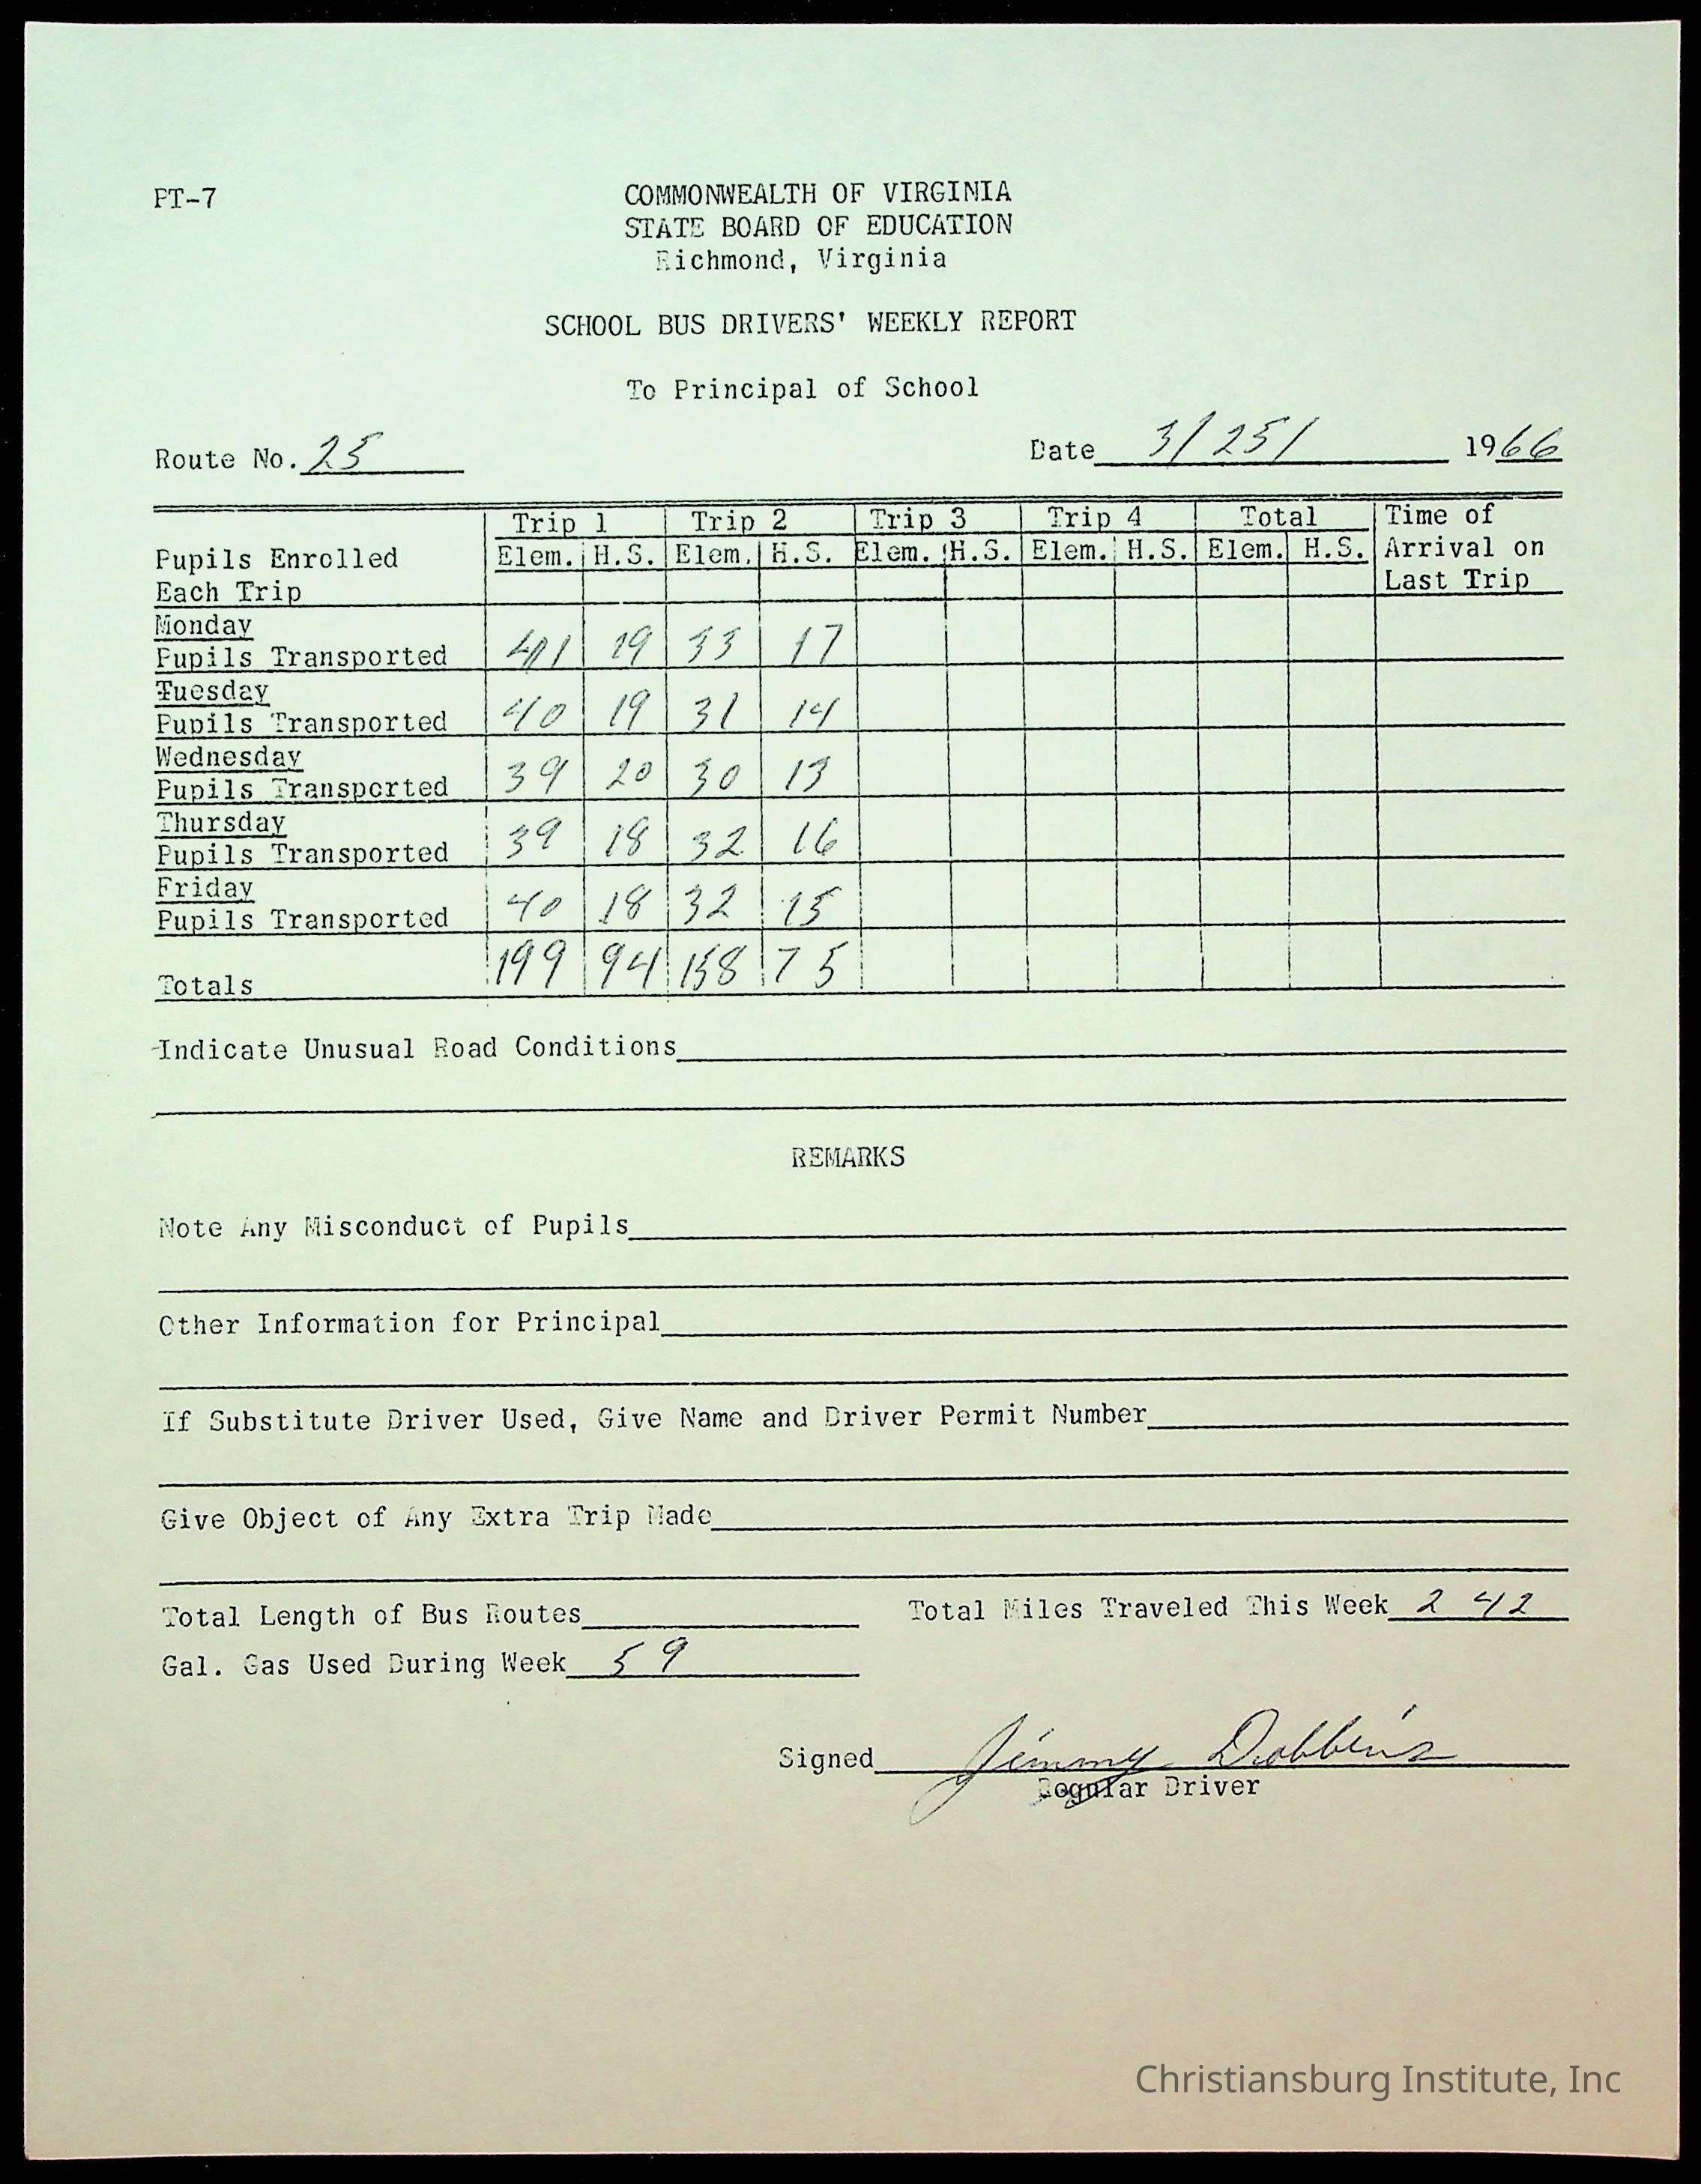 PT-7
COMMONWEALTH OF VIRGINIA
STATE BOARD OF EDUCATION
Richmond, Virginia
SCHOOL BUS DRIVERS' WEEKLY REPORT
To Principal of School
Route No. 25 Date 3/25/ 1966
Trip 1 Trip 2 Trip 3 Trip 4 Total Time of
Pupils Enrolled Elem. H.S. Elem. H.S. Elem. H.S. Elem. H.S. Elem. H.S. Arrival on
Each Trip Last Trip
Monday
Pupils Transported 41 19 33 17
Tuesday
Pupils Transported 40 19 31 14
Wednesday
Pupils Transported 39 20 30 13
Thursday
Pupils Transported 39 18 32 16
Friday
Pupils Transported 40 18 32 15
Totals 199 94 158 75
Indicate Unusual Road Conditions
REMARKS
Note Any Misconduct of Pupils
Other Information for Principal
If Substitute Driver Used, Give Name and Driver Permit Number
Give Object of Any Extra Trip Made
Total Length of Bus Routes Total Miles Traveled This Week 242
Gal. Gas Used During Week 59
Signed Jimmy Dobbins
Regular Driver
Christiansburg Institute, Inc